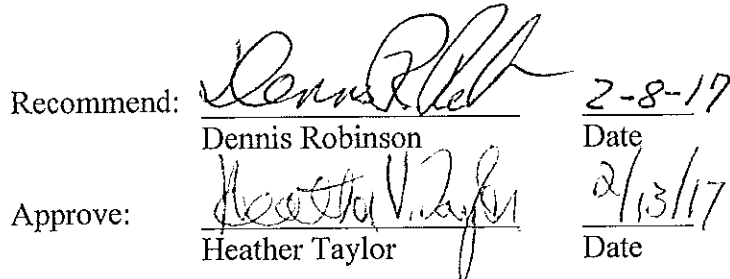 Recommend: Dennis R. Rob 2-8-17
Dennis Robinson Date
Approve: Heather V. Taylor 2/13/17
Heather Taylor Date